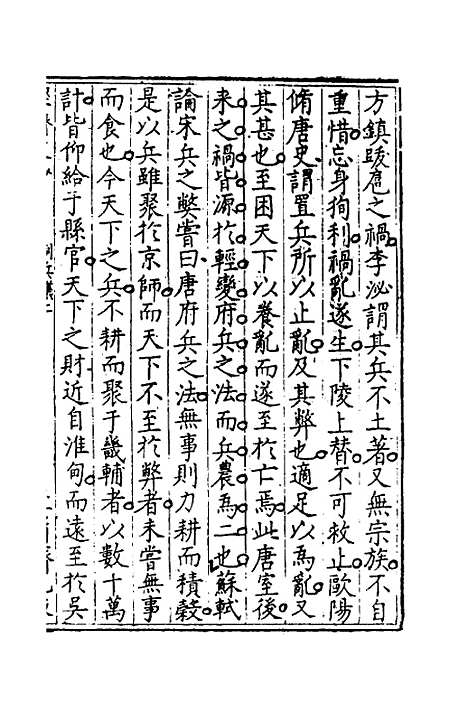 方鎮跋扈之禍李泌謂其兵不土著又無宗族不自
重惜忘身狥利禍亂遂生下陵上替不可救止歐陽
脩唐史謂置兵所以止亂及其弊也適足以爲亂又
其甚也至困天下以養亂而遂至於亡焉此唐室後
来之禍皆源於輕變府兵之法而兵農爲二也蘇軾
論宋兵之弊嘗曰唐府兵之法無事則力耕而積榖
是以兵雖聚於京師而天下不至於弊者未嘗無事
而食也今天下之兵不耕而聚于畿輔者以數十萬
計皆仰給于縣官天下之財近自淮甸而遠至於吳